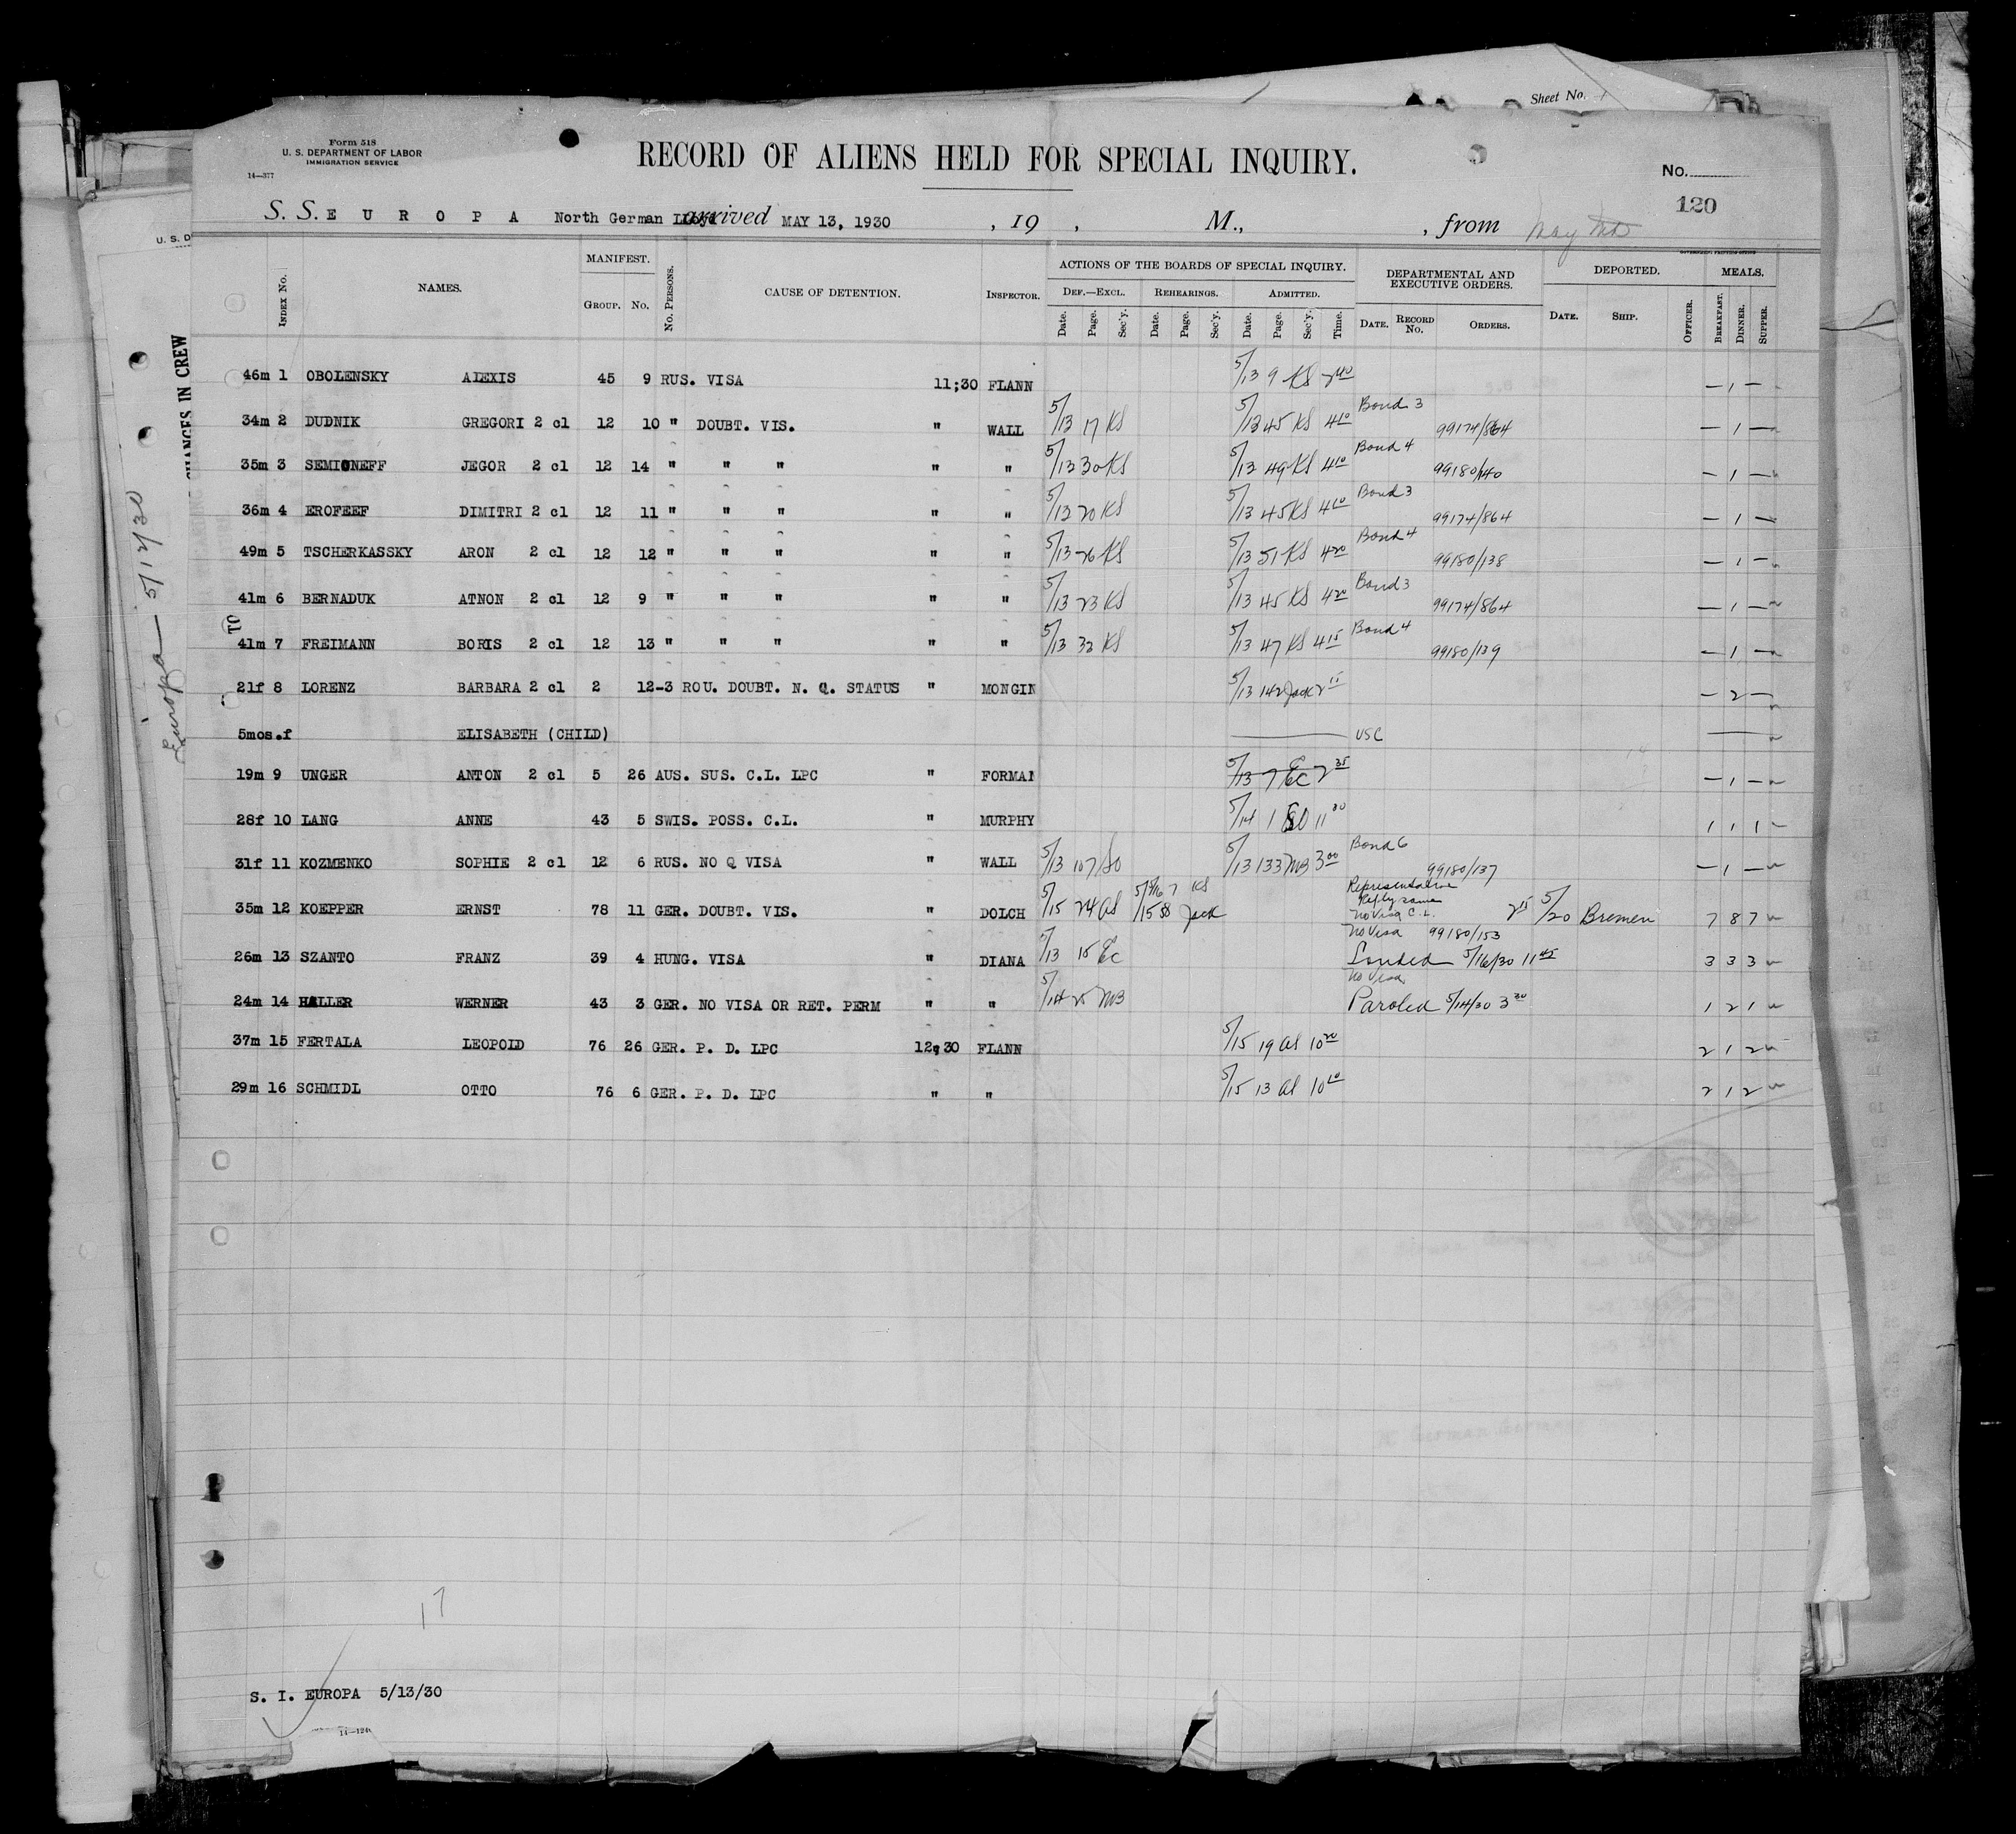 Sheet No. 1
Form 518
U. S. DEPARTMENT OF LABOR
IMMIGRATION SERVICE
14—377
RECORD OF ALIENS HELD FOR SPECIAL INQUIRY.
No.
120
S. S. E U R O P A North German Lloyd arrived MAY 13, 1930 , 19 , M., , from
U. S. D
CHANGES IN CREW
TO
Europa — 5/12/30
INDEX No. NAMES. MANIFEST. GROUP. No. No. PERSONS. CAUSE OF DETENTION. INSPECTOR. ACTIONS OF THE BOARDS OF SPECIAL INQUIRY. DEPARTMENTAL AND EXECUTIVE ORDERS. DEPORTED. MEALS.
DEF.—EXCL. REHEARINGS. ADMITTED.
Date. Page. Sec'y. Date. Page. Sec'y. Date. Page. Sec'y. Time. DATE. RECORD No. ORDERS. DATE. SHIP. OFFICER. BREAKFAST. DINNER. SUPPER.
46m 1 OBOLENSKY ALEXIS 45 9 RUS. VISA 11;30 FLANN 5/13 9 KS 2 40 — 1 —
34m 2 DUDNIK GREGORI 2 cl 12 10 " DOUBT. VIS. " WALL 5/13 17 KS 5/13 45 KS 4 10 Bond 3 99174/864 — 1 —
35m 3 SEMIONEFF JEGOR 2 cl 12 14 " " " " " 5/13 30 KS 5/13 49 KS 4 10 Bond 4 99180/140 — 1 —
36m 4 EROFEEF DIMITRI 2 cl 12 11 " " " " " 5/13 20 KS 5/13 45 KS 4 10 Bond 3 99174/864 — 1 —
49m 5 TSCHERKASSKY ARON 2 cl 12 12 " " " " " 5/13 26 KS 5/13 51 KS 4 20 Bond 4 99180/138 — 1 —
41m 6 BERNADUK ATNON 2 cl 12 9 " " " " " 5/13 23 KS 5/13 45 KS 4 20 Bond 3 99174/864 — 1 —
41m 7 FREIMANN BORIS 2 cl 12 13 " " " " " 5/13 32 KS 5/13 47 KS 4 15 Bond 4 99180/139 — 1 —
21f 8 LORENZ BARBARA 2 cl 2 12-3 ROU. DOUBT. N. Q. STATUS " MONGIN 5/13 142 Jack 2 15 — 2 —
5mos.f ELISABETH (CHILD) USC
19m 9 UNGER ANTON 2 cl 5 26 AUS. SUS. C.L. LPC " FORMAN 5/13 7 EC 2 35 — 1 —
28f 10 LANG ANNE 43 5 SWIS. POSS. C.L. " MURPHY 5/14 1 11 30 1 1 1
31f 11 KOZMENKO SOPHIE 2 cl 12 6 RUS. NO Q VISA " WALL 5/13 107 5/13 133 MB 3 00 Bond 6 99180/137 — 1 —
35m 12 KOEPPER ERNST 78 11 GER. DOUBT. VIS. " DOLCH 5/15 24 5/16 7 KS 5/15 58 Jack Representative no Visa C.L. no Visa 99180/153 2 15 5/20 Bremen 7 8 7
26m 13 SZANTO FRANZ 39 4 HUNG. VISA " DIANA 5/13 15 EC Landed 5/16/30 11 45 3 3 3
24m 14 HALLER WERNER 43 3 GER. NO VISA OR RET. PERM " " 5/14 25 MB no Visa Paroled 5/14/30 3 30 1 2 1
37m 15 FERTALA LEOPOLD 76 26 GER. P. D. LPC 12;30 FLANN 5/15 19 10 20 2 1 2
29m 16 SCHMIDL OTTO 76 6 GER. P. D. LPC " " 5/15 13 10 10 2 1 2
17
S. I. EUROPA 5/13/30